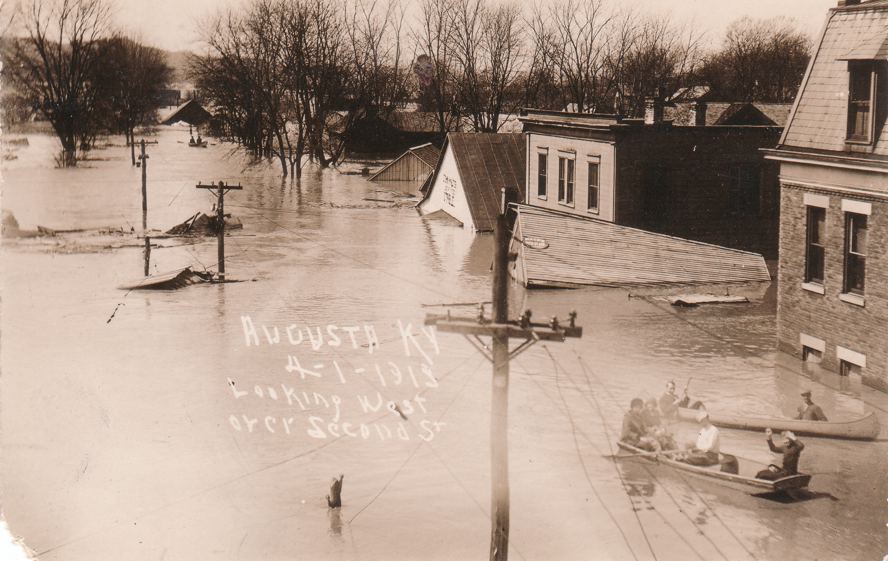 AUGUSTA KY
4-1-1913
Looking West
over Second St